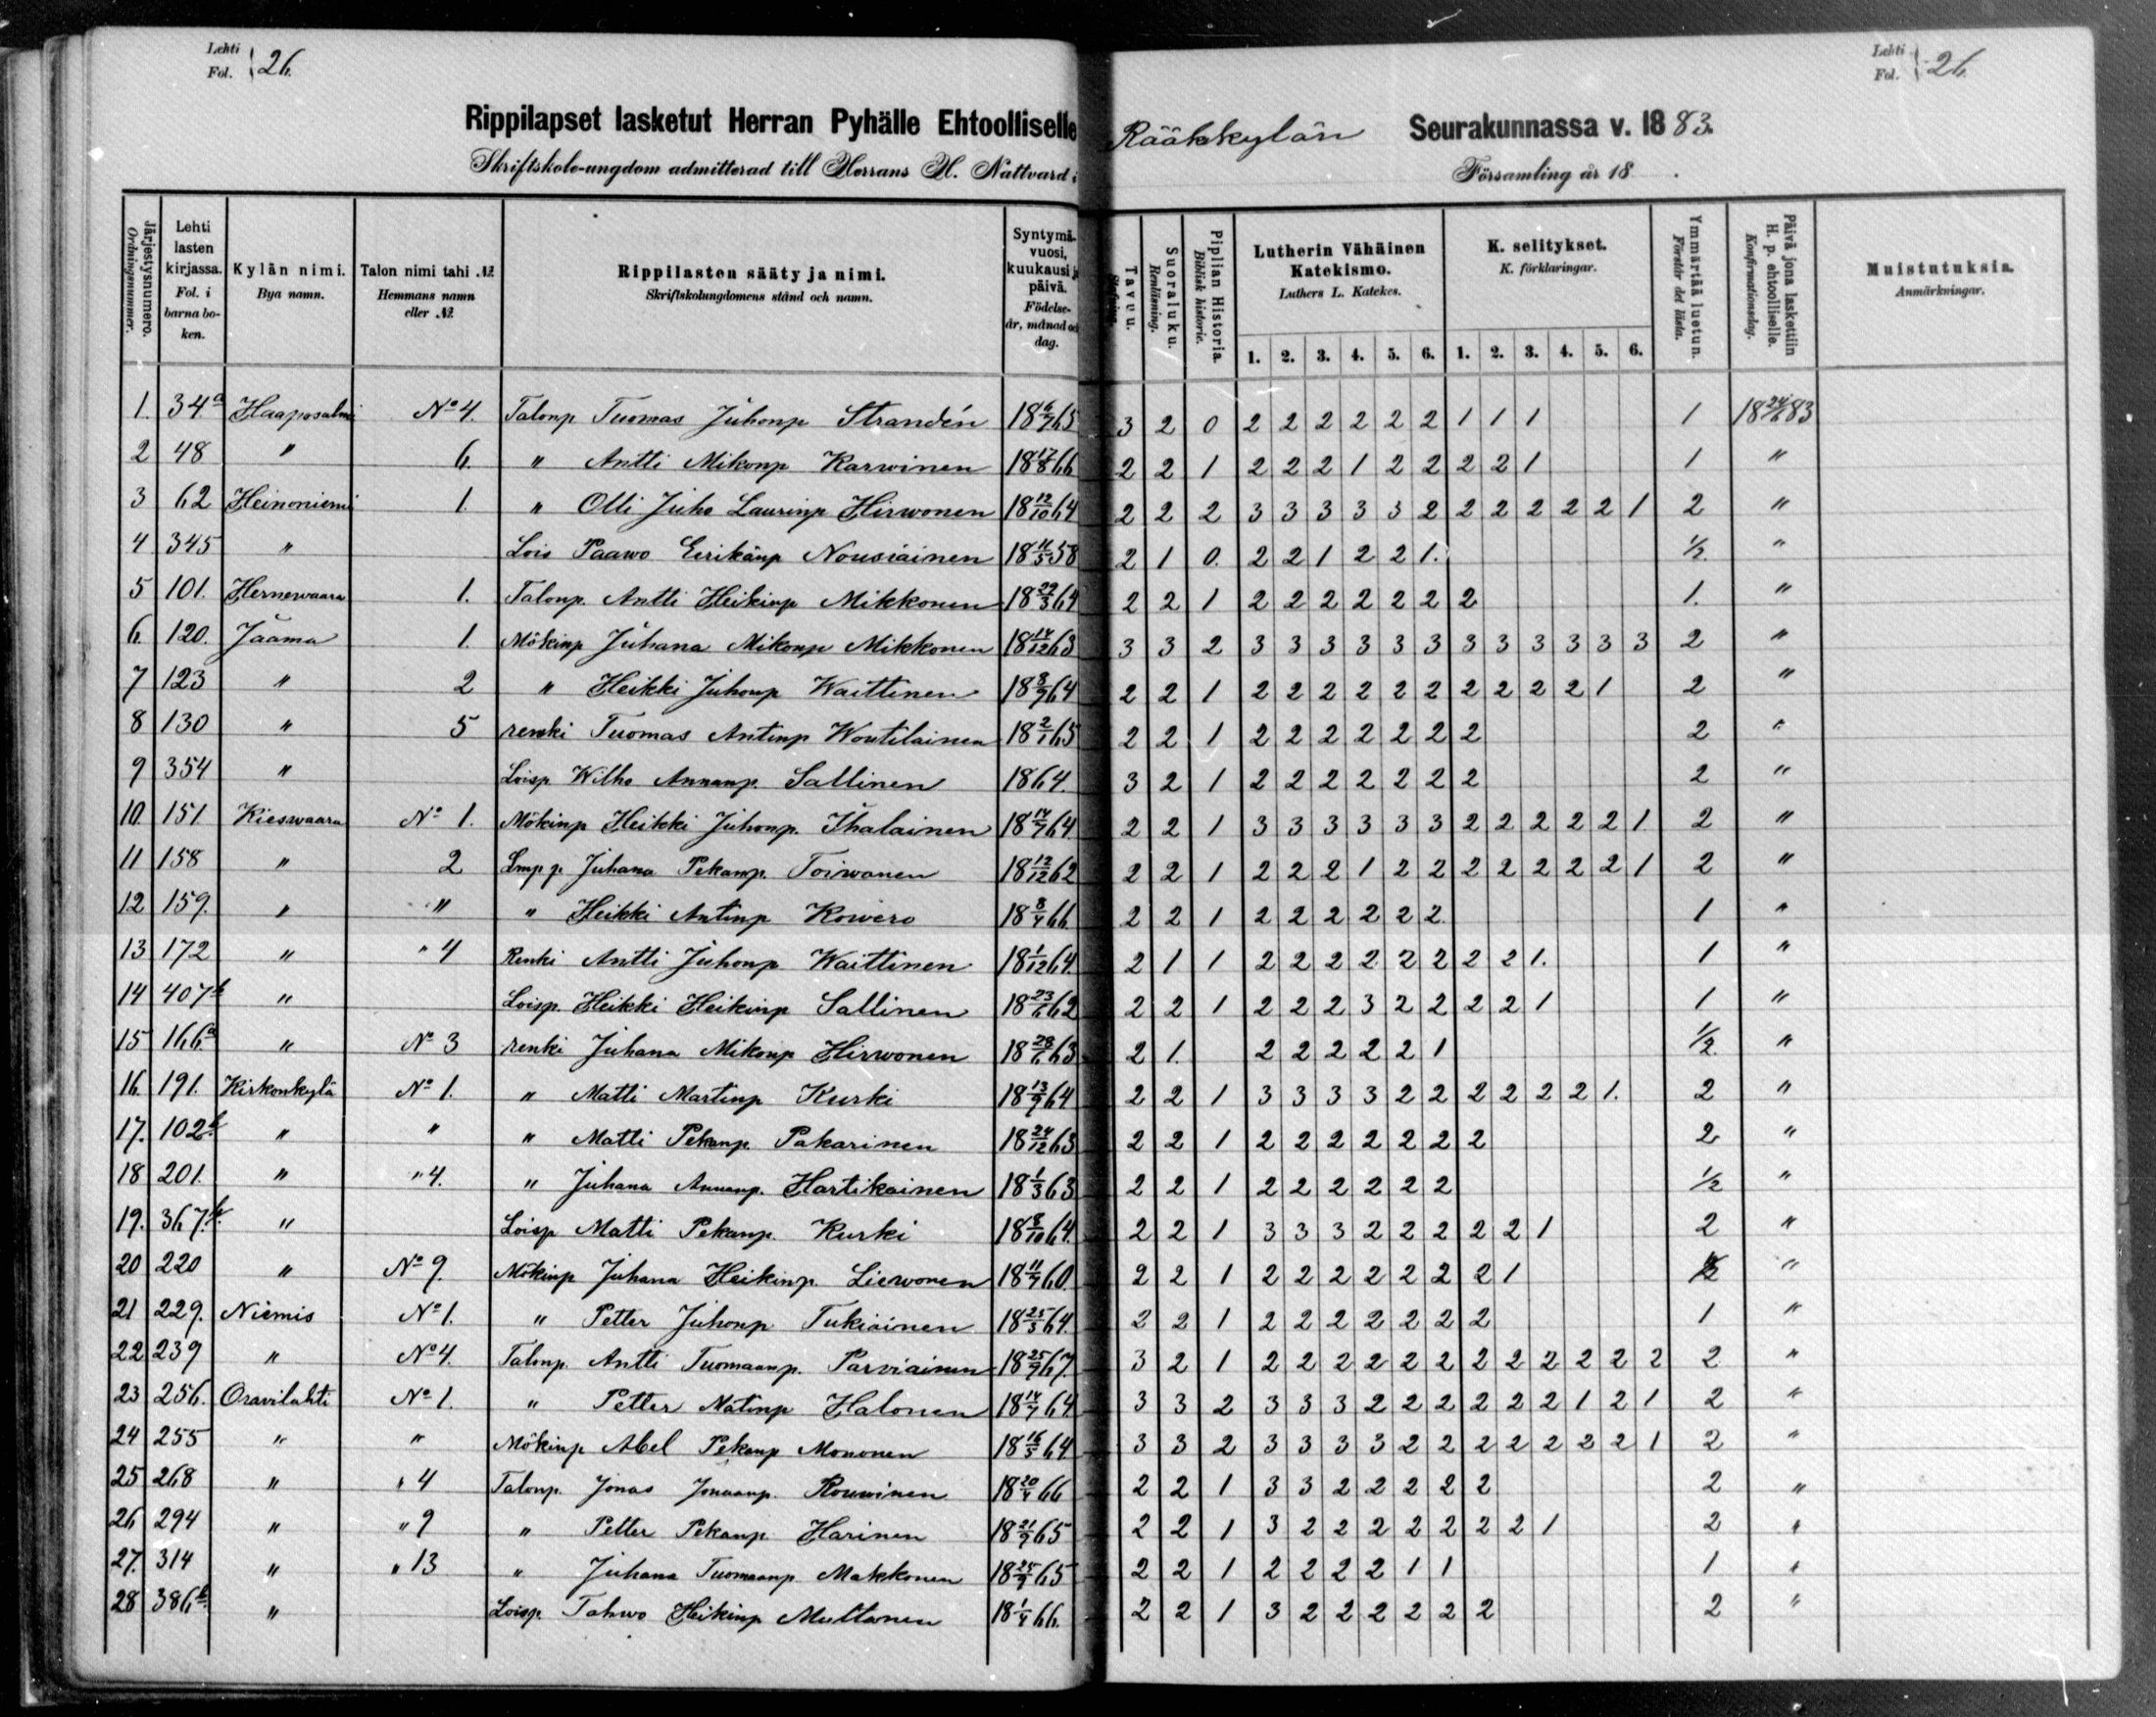 Lehti Fol. 26. Lehti Fol. 26.
Rippilapset lasketut Herran Pyhälle Ehtoolliselle Rääkkylän Seurakunnassa v. 1883.
Skriftskole-ungdom admitterad till Herrans H. Nattvard i Församling år 18 .
Järjestysnumero. Ordningsnummer.
Lehti lasten kirjassa. Fol. i barna boken.
Kylän nimi. Bya namn.
Talon nimi tahi №. Hemmans namn eller №.
Rippilasten sääty ja nimi. Skriftskolungdomens stånd och namn.
Syntymä-vuosi, kuukausi ja päivä. Födelse-år, månad och dag.
Tavuu.
Suoraluku. Renläsning.
Piplian Historia. Biblisk historie.
Lutherin Vähäinen Katekismo. Luthers L. Katekes.
K. selitykset. K. förklaringar.
Ymmärtää luetun. Förstår det lästa.
Päivä jona laskettiin H. p. ehtoolliselle. Konfirmationsdag.
Muistutuksia. Anmärkningar.
1. 2. 3. 4. 5. 6. 1. 2. 3. 4. 5. 6.
1. 34a Haaposalmi No 4. Talonp Tuomas Juhonp Strandén 18 6/7 65 3 2 0 2 2 2 2 2 2 1 1 1 1 18 24/6 83
2 48 " 6. " Antti Mikonp Karwinen 18 17/8 66 2 2 1 2 2 2 1 2 2 2 2 1 1 "
3 62 Heinoniemi 1. " Olli Juho Laurinp Hirwonen 18 12/10 64 2 2 2 3 3 3 3 3 2 2 2 2 2 2 1 2 "
4 345 " Lois Paawo Eerikänp Nousiainen 18 11/5 58 2 1 0. 2 2 1 2 2 1. 1/2. "
5 101. Hernewaara 1. Talonp. Antti Heikinp Mikkonen 18 29/3 64 2 2 1 2 2 2 2 2 2 2 1. "
6. 120. Jaama 1. Mökinp Juhana Mikonp Mikkonen 18 14/12 63 3 3 2 3 3 3 3 3 3 3 3 3 3 3 3 2 "
7 123 " 2 " Heikki Juhonp Waittinen 18 8/9 64 2 2 1 2 2 2 2 2 2 2 2 2 2 1 2 "
8 130 " 5 renki Tuomas Antinp Woutilainen 18 2/1 65 2 2 1 2 2 2 2 2 2 2 2 "
9 354 " Loisp Wilho Annanp. Sallinen 1864. 3 2 1 2 2 2 2 2 2 2 2 "
10. 151 Kieswaara No 1. Mökinp Heikki Juhonp. Ihalainen 18 14/7 64. 2 2 1 3 3 3 3 3 3 2 2 2 2 2 1. 2 "
11 158 " 2 Lmp p. Juhana Pekanp. Toiwanen 18 12/12 62 2 2 1 2 2 2 1 2 2 2 2 2 2 2 1 2 "
12 159. " " " Heikki Antinp Kowero 18 8/4 66. 2 2 1 2 2 2 2 2 2. 1 "
13 172 " " 4 Renki Antti Juhonp Waittinen 18 1/12 64. 2 1 1 2 2 2 2 2 2 2 2 1. 1 "
14 407b " Loisp. Heikki Heikinp Sallinen 18 23/6 62 2 2 1 2 2 2 3 2 2 2 2 1 1 "
15 166a " No 3 renki Juhana Mikonp Hirwonen 18 28/6 63 2 1. 2 2 2 2 2 1 1/2. "
16. 191. Kirkonkylä No 1. " Matti Martinp Kurki 18 13/9 64 2 2 1 3 3 3 3 2 2 2 2 2 2 1. 2 "
17. 102b " " " Matti Pekanp. Pakarinen 18 24/12 63 2 2 1 2 2 2 2 2 2 2 2 "
18 201. " " 4. " Juhana Annanp. Hartikainen 18 1/3 63 2 2 1 2 2 2 2 2 2 1/2 "
19. 367.b " Loisp Matti Pekanp. Kurki 18 8/10 64. 2 2 1 3 3 3 2 2 2 2 2 1 2 "
20 220 " No 9. Mökinp Juhana Heikinp. Liewonen 18 11/7 60. 2 2 1 2 2 2 2 2 2 2 1 "
21 229. Niemis No 1. " Petter Juhonp Tukiainen 18 25/3 64. 2 2 1 2 2 2 2 2 2 2 1 "
22 239 " No 4. Talonp. Antti Tuomaanp. Parviainen 18 25/9 67. 3 2 1 2 2 2 2 2 2 2 2 2 2 2 2 2 "
23 256. Oravilahti No 1. " Petter Matinp Halonen 18 14/7 64 3 3 2 3 3 3 2 2 2 2 2 2 1 2 1 2 "
24 255 " " Mökinp Abel Pekanp Mononen 18 16/5 64. 3 3 2 3 3 3 3 2 2 2 2 2 2 2 1 2 "
25 268 " " 4 Talonp. Jonas Jonaanp. Rouwinen 18 20/4 66 2 2 1 3 3 2 2 2 2 2 2 "
26 294 " " 9 " Petter Pekanp. Harinen 18 21/9 65 2 2 1 3 2 2 2 2 2 2 2 1 2 "
27. 314 " " 13 " Juhana Tuomaanp. Makkonen 18 25/9 65 2 2 1 2 2 2 2 1 1 1 "
28 386b. " Loisp. Tahwo Heikinp Multanen 18 1/4 66. 2 2 1 3 2 2 2 2 2 2 2 "